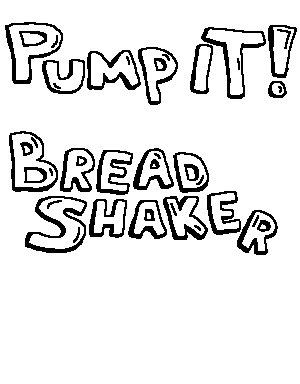 PUMP IT!
BREAD
SHAKER